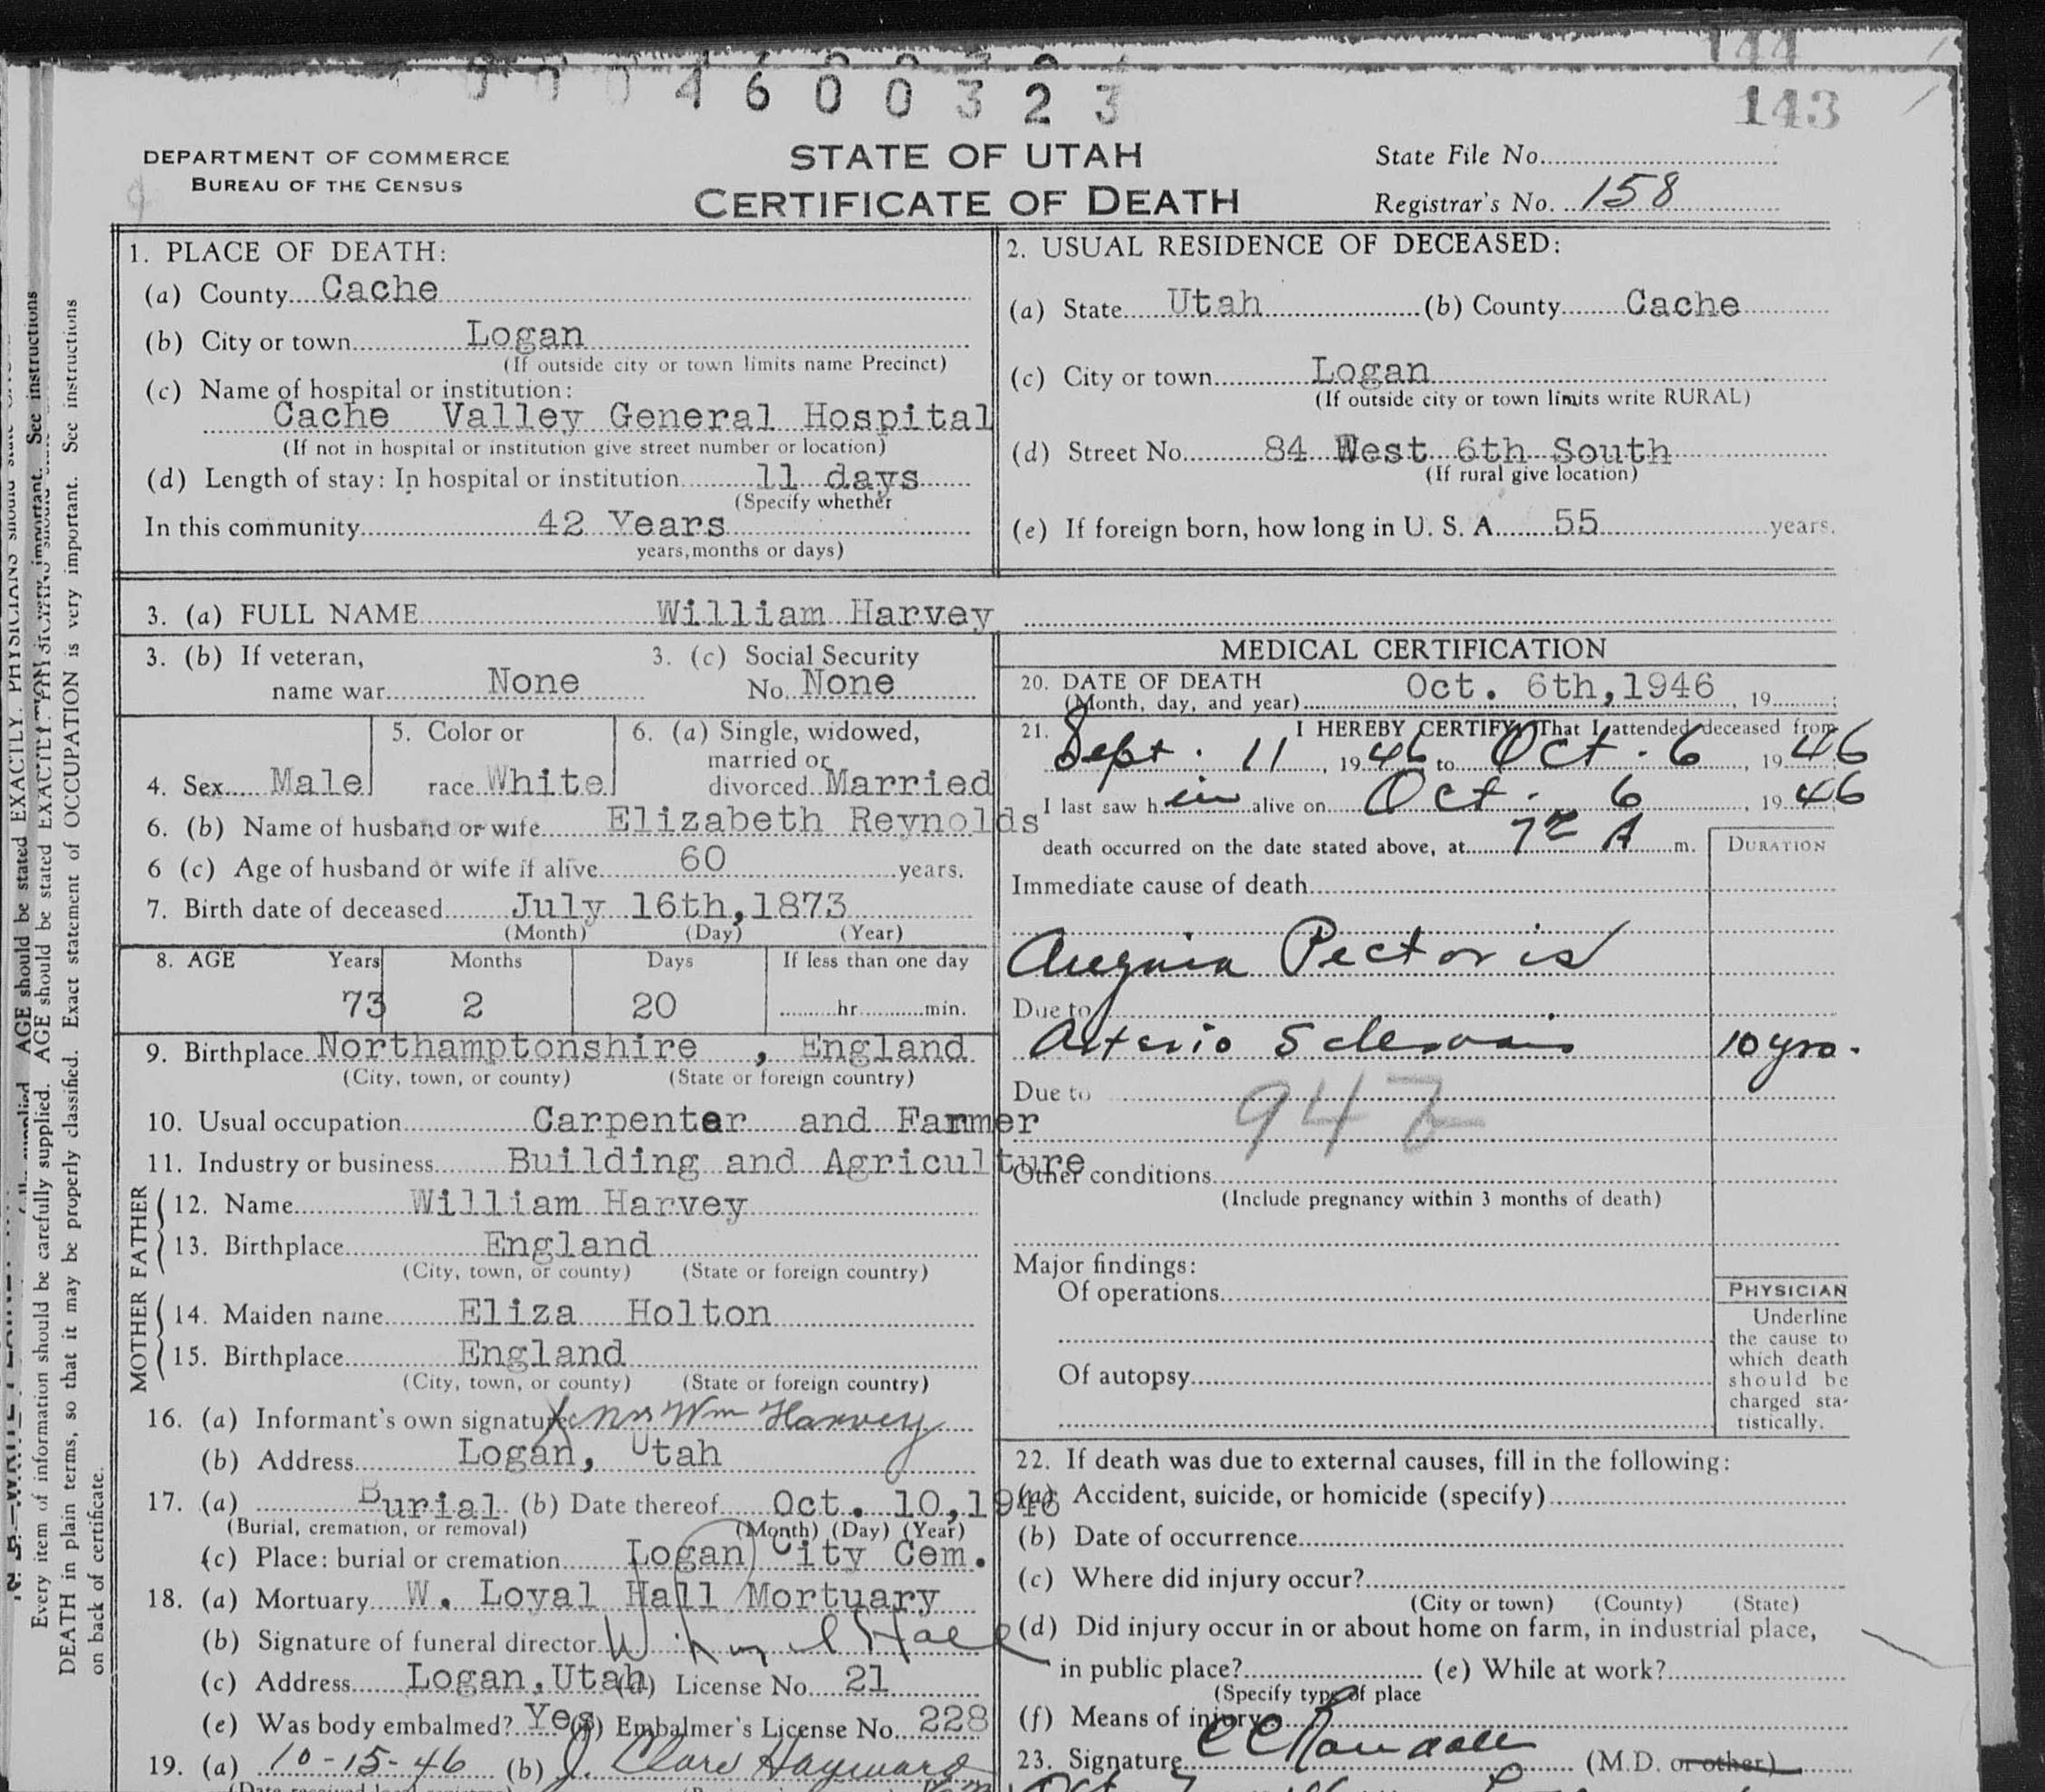 144
4 6 0 0 3 2 3
143
DEPARTMENT OF COMMERCE
BUREAU OF THE CENSUS
STATE OF UTAH
CERTIFICATE OF DEATH
State File No.
Registrar's No. 158
1. PLACE OF DEATH:
(a) County Cache
(b) City or town Logan
(If outside city or town limits name Precinct)
(c) Name of hospital or institution:
Cache Valley General Hospital
(If not in hospital or institution give street number or location)
(d) Length of stay: In hospital or institution 11 days
(Specify whether
In this community 42 Years
years, months or days)
2. USUAL RESIDENCE OF DECEASED:
(a) State Utah (b) County Cache
(c) City or town Logan
(If outside city or town limits write RURAL)
(d) Street No. 84 West 6th South
(If rural give location)
(e) If foreign born, how long in U. S. A. 55 years.
3. (a) FULL NAME William Harvey
3. (b) If veteran,
name war None
3. (c) Social Security
No. None
4. Sex Male
5. Color or
race White
6. (a) Single, widowed,
married or
divorced Married
6. (b) Name of husband or wife Elizabeth Reynolds
6 (c) Age of husband or wife if alive 60 years.
7. Birth date of deceased July 16th, 1873
(Month) (Day) (Year)
8. AGE Years Months Days If less than one day
73 2 20 hr. min.
9. Birthplace Northamptonshire , England
(City, town, or county) (State or foreign country)
10. Usual occupation Carpenter and Farmer
11. Industry or business Building and Agriculture
FATHER
12. Name William Harvey
13. Birthplace England
(City, town, or county) (State or foreign country)
MOTHER
14. Maiden name Eliza Holton
15. Birthplace England
(City, town, or county) (State or foreign country)
16. (a) Informant's own signature X Mrs Wm Harvey
(b) Address Logan, Utah
17. (a) Burial (b) Date thereof Oct. 10, 1946
(Burial, cremation, or removal) (Month) (Day) (Year)
(c) Place: burial or cremation Logan City Cem.
18. (a) Mortuary W. Loyal Hall Mortuary
(b) Signature of funeral director Hall
(c) Address Logan, Utah (d) License No. 21
(e) Was body embalmed? Yes (f) Embalmer's License No. 228
19. (a) 10-15-46 (b) J. Clare Hayward
MEDICAL CERTIFICATION
20. DATE OF DEATH
(Month, day, and year) Oct. 6th, 1946 , 19 ;
21. I HEREBY CERTIFY, That I attended deceased from
Sept. 11, 1946 to Oct. 6, 1946
I last saw him alive on Oct. 6, 1946
death occurred on the date stated above, at A m.
DURATION
Immediate cause of death
Angina Pectoris
Due to
Arterio Sclerosis 10 yrs.
Due to
94
Other conditions
(Include pregnancy within 3 months of death)
Major findings:
Of operations
Of autopsy
PHYSICIAN
Underline
the cause to
which death
should be
charged sta-
tistically.
22. If death was due to external causes, fill in the following:
(a) Accident, suicide, or homicide (specify)
(b) Date of occurrence
(c) Where did injury occur?
(City or town) (County) (State)
(d) Did injury occur in or about home on farm, in industrial place,
in public place? (e) While at work?
(Specify type of place
(f) Means of injury
23. Signature C C Randall (M.D. or other)
AGE should be stated EXACTLY. PHYSICIANS should
important. See instructions
Every item of information should be carefully supplied. AGE should be stated EXACTLY.
DEATH in plain terms, so that it may be properly classified. Exact statement of OCCUPATION is very important. See instructions
on back of certificate.